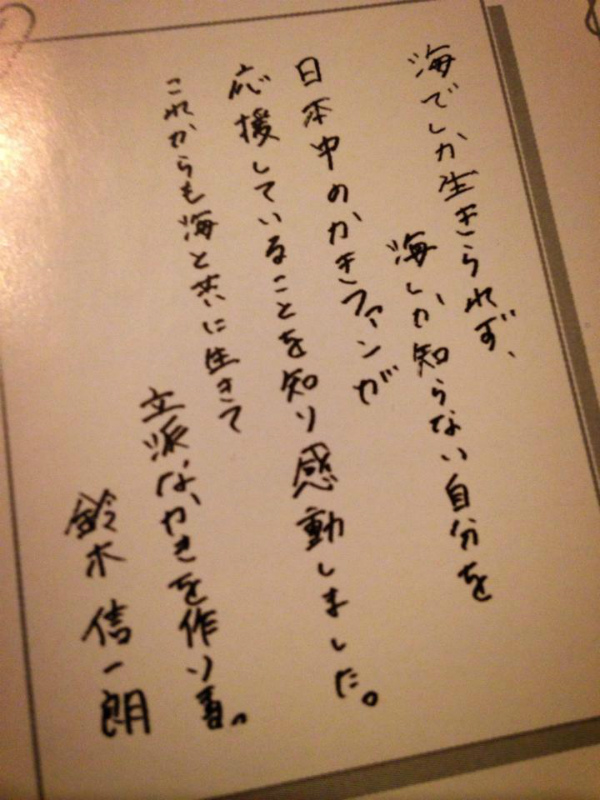 海でしか生きられず、
海しか知らない自分を
日本中のかきファンが
応援していることを知り感動しました。
これからも海と共に生きて
立派なかきを作り〼。
鈴木信一朗